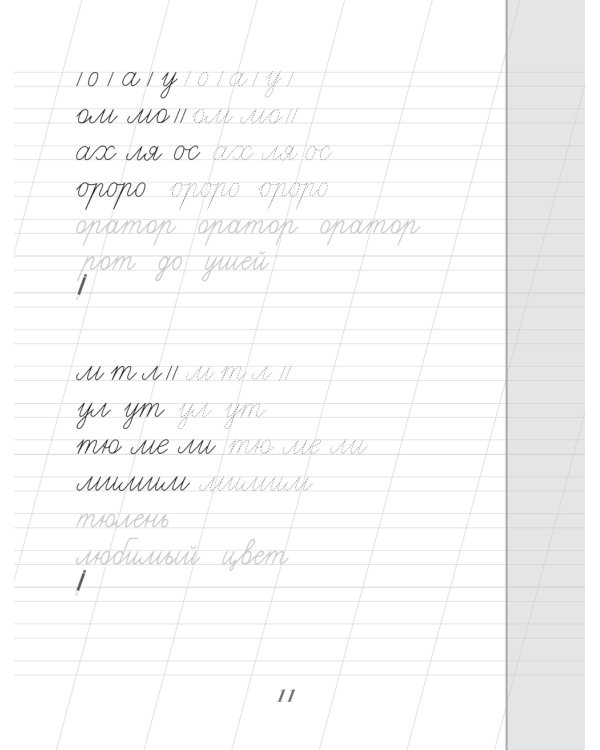 / о / а / у / о / а / у /
ом мо // ом мо //
ах ля ос ах ля ос
ороро ороро ороро
оратор оратор оратор
рот до ушей
м т л // м т л //
ул ут ул ут
тю ме ли тю ме ли
мимим мимим
тюлень
любимый цвет
11